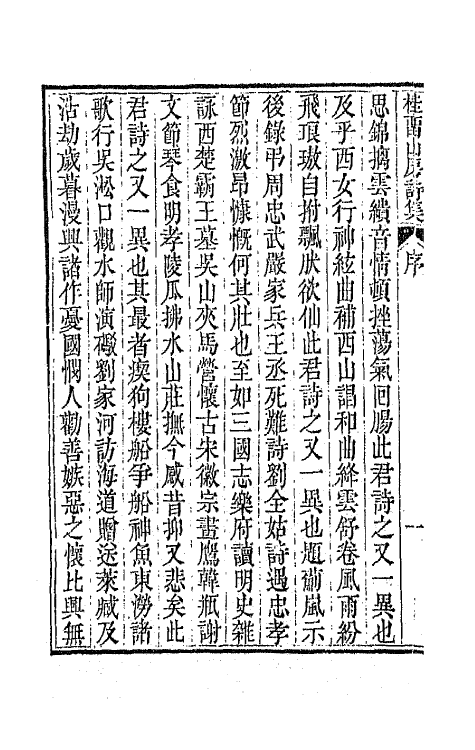 桂酉山房詩集 序 一
思錦摛雲繢音情頓挫蕩氣回腸此君詩之又一異也
及乎西女行神絃曲補西山謌和曲絳雲舒卷風雨紛
飛琅璈自拊飄肰欲仙此君詩之又一異也題蘜嵐示
後錄弔周忠武嚴家兵王丞死難詩劉全姑詩遇忠孝
節烈激昂慷慨何其壯也至如三國志樂府讀明史雜
詠西楚霸王墓吳山夾馬營懷古宋徽宗畫鷹韓瓶謝
文節琴食明孝陵瓜拂水山莊撫今感昔抑又悲矣此
君詩之又一異也其最者瘈狗樓船爭船神魚東勞諸
歌行吳淞口觀水師演礮劉家河訪海道贈送萊臧及
沾劫歲暮漫興諸作憂國憫人勸善嫉惡之懷比興無